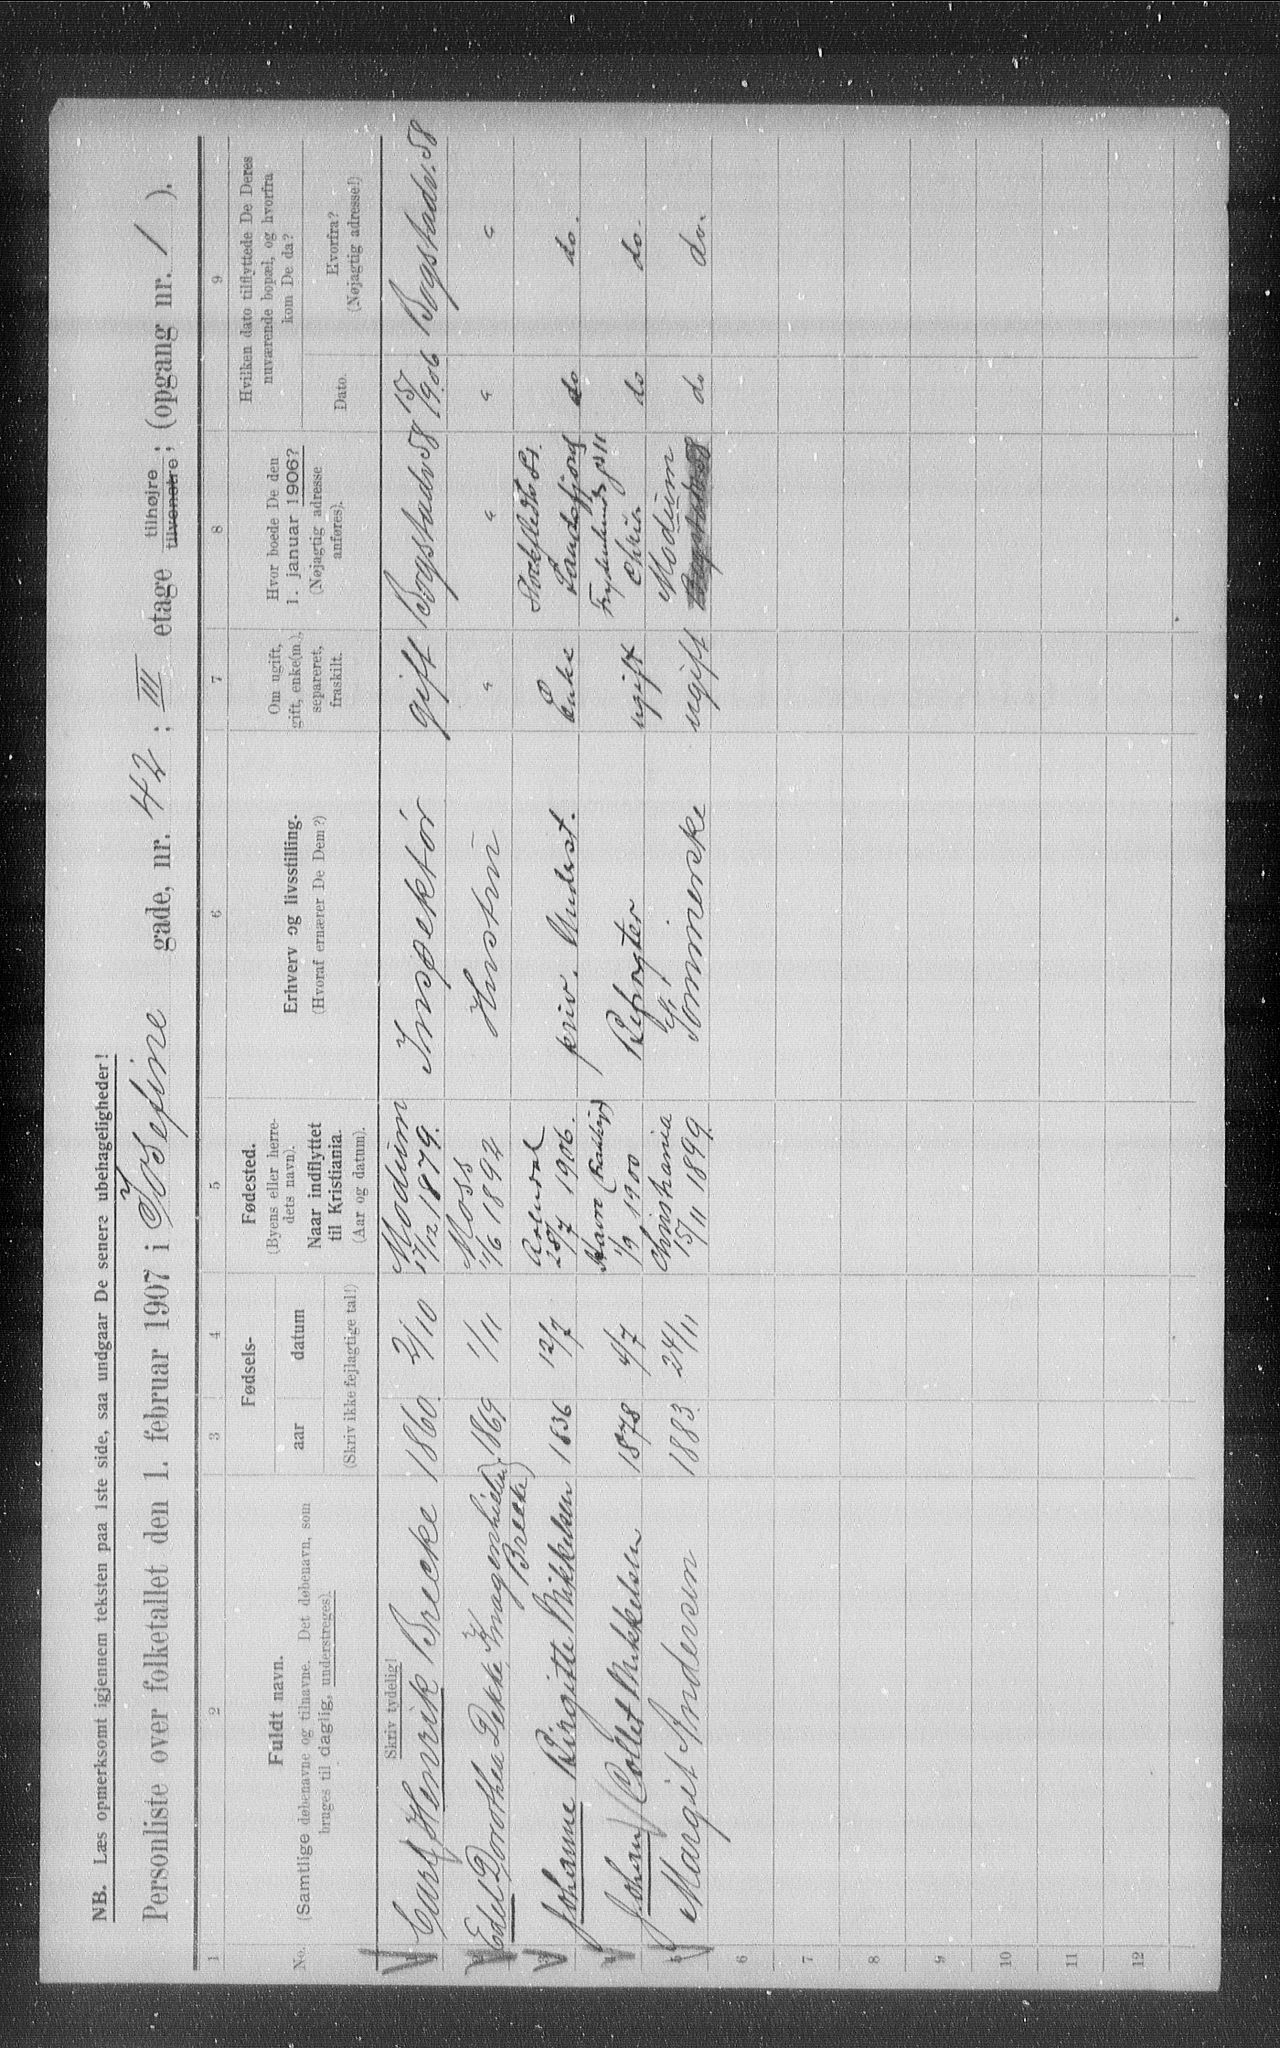 NB. Læs opmerksomt igjennem teksten paa 1ste side, saa undgaar De senere ubehageligheder!
Personliste over folketallet den 1. februar 1907 i Josefine gade, nr. 42; III etage tilhøjre tilvenstre; (opgang nr. 1).
1 2 3 4 5 6 7 8 9
No.
Fuldt navn.
(Samtlige døbenavne og tilnavne. Det døbenavn, som
bruges til daglig, understreges).
Skriv tydelig!
Fødsels-
aar datum
(Skriv ikke fejlagtige tal!)
Fødested.
(Byens eller herre-
dets navn).
Naar indflyttet
til Kristiania.
(Aar og datum).
Erhverv og livsstilling.
(Hvoraf ernærer De Dem?)
Om ugift,
gift, enke(m.),
separeret,
fraskilt.
Hvor boede De den
1. januar 1906?
(Nøjagtig adresse
anføres).
Hvilken dato tilflyttede De Deres
nuværende bopæl, og hvorfra
kom De da?
Dato.
Hvorfra?
(Nøjagtig adresse!)
1 Carl Henrik Brecke 1860 2/10 Modum 17/12 1879. Inspektør gift Bogstadv. 58 1906 Bogstadv. 58
2 Edel Dorothea Brecke 1869 1/11 Moss 1/6 1892 Hustru " " " "
3 Johanne Birgitte Mikkelsen 1836 12/7 Arendal 28/7 1906. priv. Underst. Enke Sandefjord do do.
4 Johan Collet Mikkelsen 1878 4/7 1/9 1900 ugift Chria do do.
5 Margit Andersen 1883 24/11 Christiania 15/11 1899 ugift Modum do do.
6
7
8
9
10
11
12